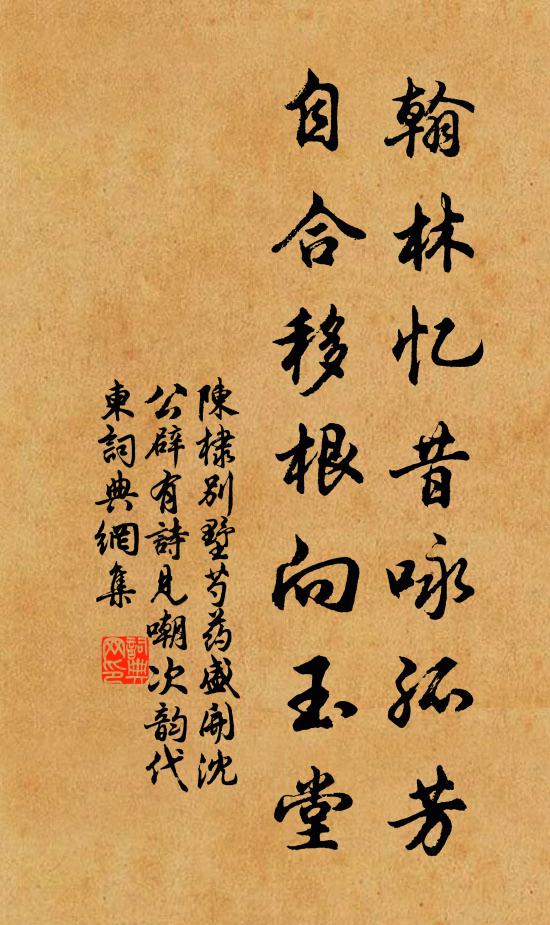 翰林忆昔咏孤芳
自合移根向玉堂
陳棣别墅芍药盛開沈
公辟有詩見嘲次韵代
東詞典網集
詞典
网印